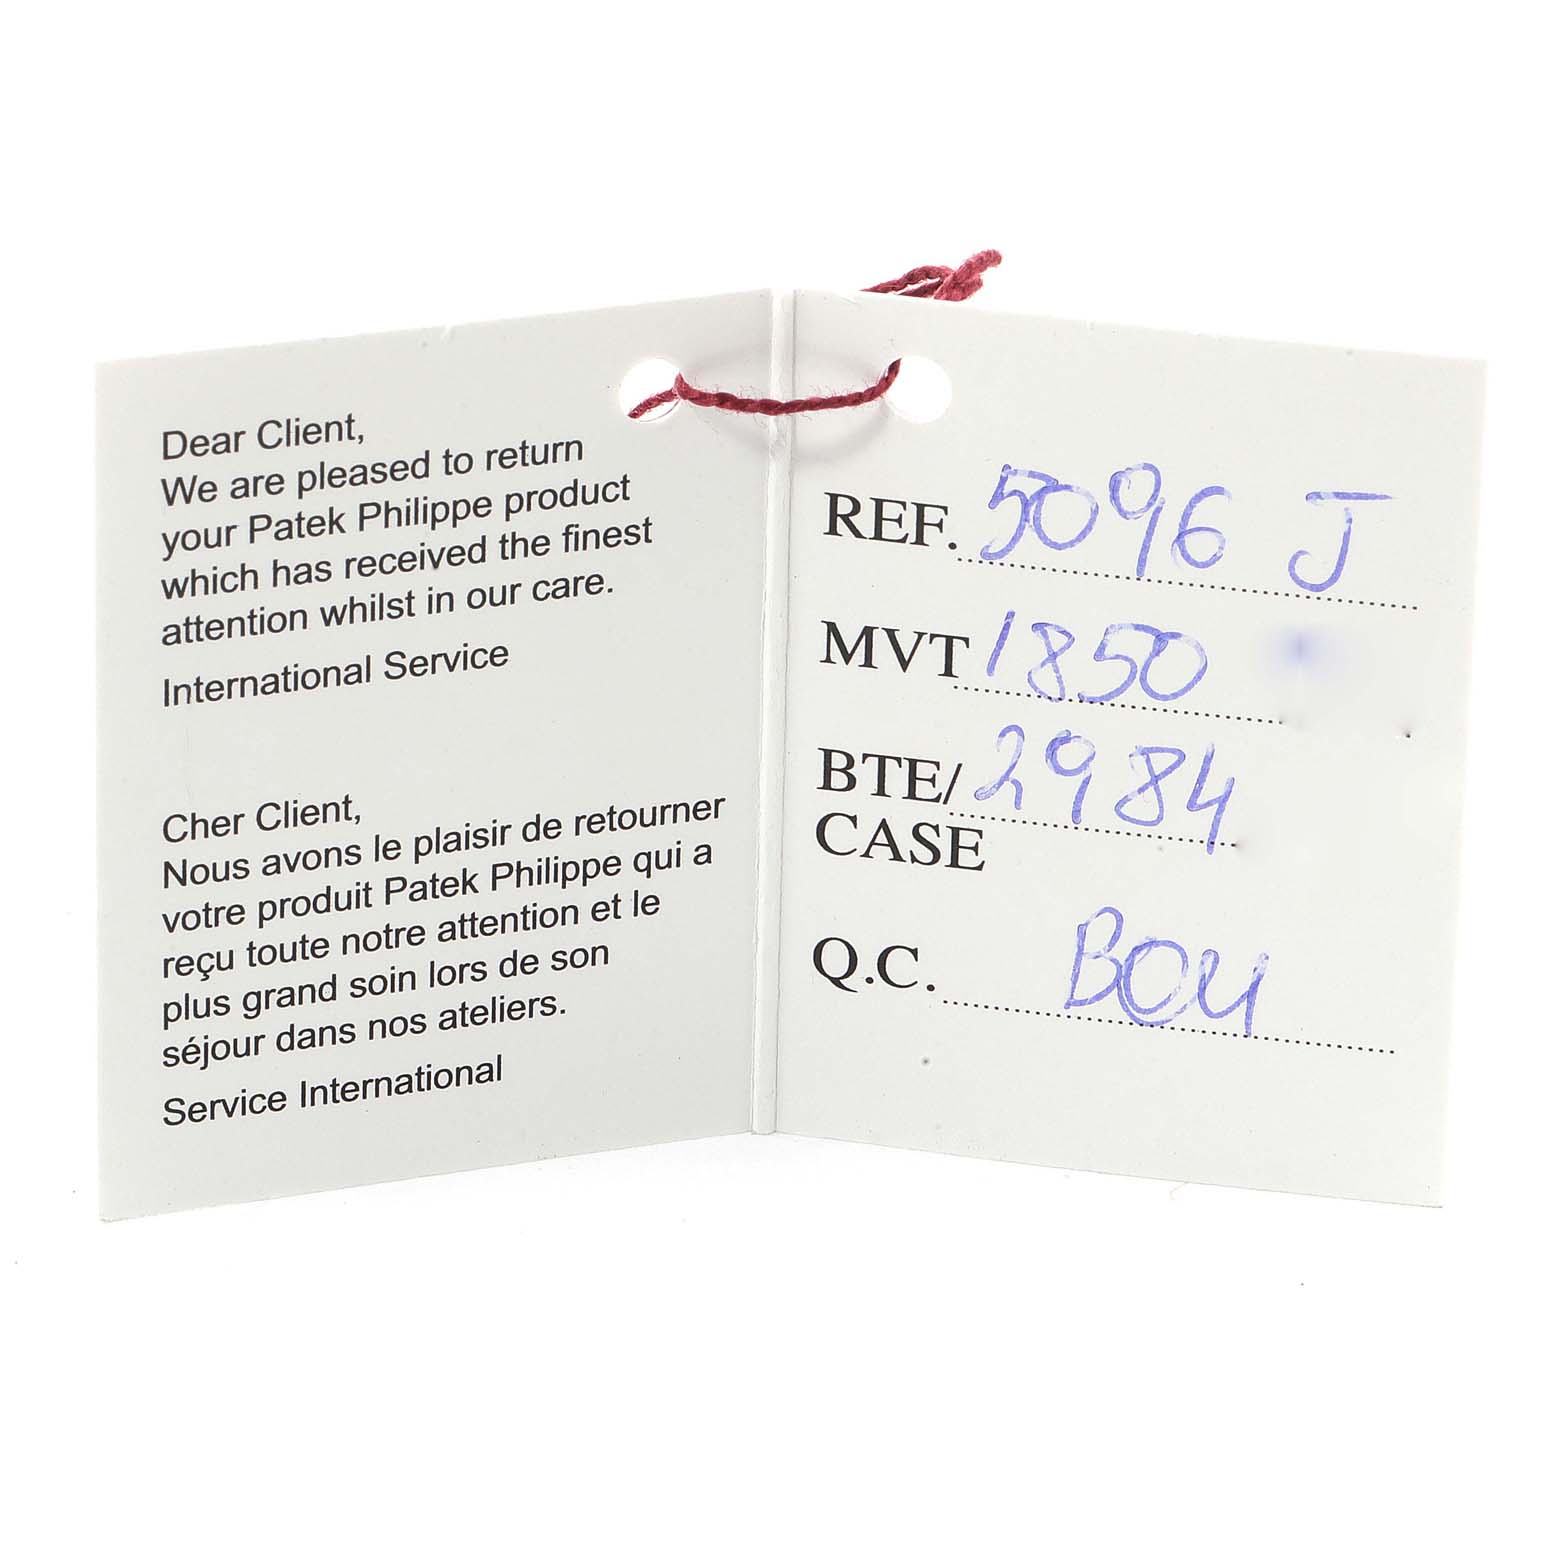 Dear Client,
We are pleased to return
your Patek Philippe product
which has received the finest
attention whilst in our care.
International Service
Cher Client,
Nous avons le plaisir de retourner
votre produit Patek Philippe qui a
reçu toute notre attention et le
plus grand soin lors de son
séjour dans nos ateliers.
Service International
REF. 5096 J
MVT 1850
BTE/ 2984
CASE
Q.C. BOU